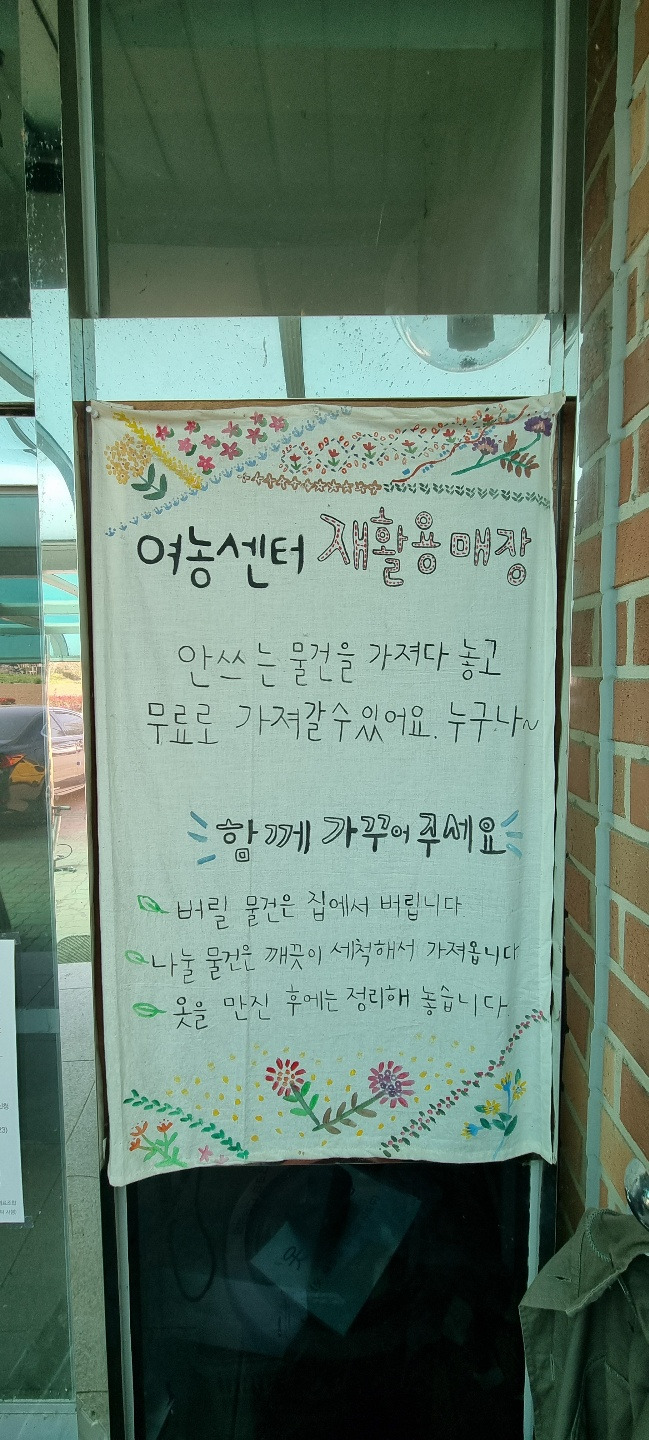 여농센터 재활용매장
안쓰는 물건을 가져다 놓고
무료로 가져갈수있어요. 누구나~
함께 가꾸어 주세요
버릴 물건은 집에서 버립니다.
나눌 물건은 깨끗이 세척해서 가져옵니다
옷을 만진 후에는 정리해 놓습니다.